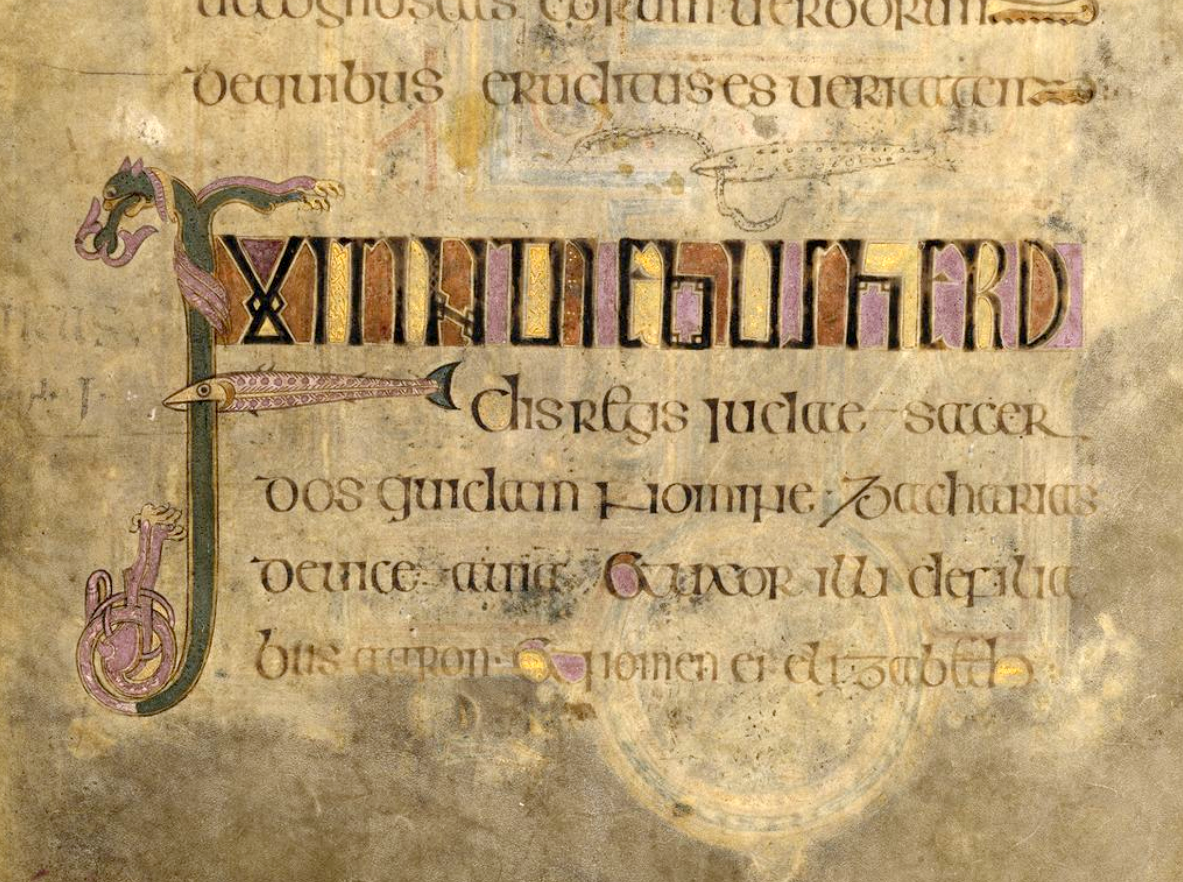 ut cognoscas eorum uerborum
dequibus eruditus es ueritatem
FUIT IN DIEBUS HERO
dis regis iudae sacer
dos quidam nomine zacharias
deuice auia & uxor illi defilia
bus aaron · & nomen ei elizabeth